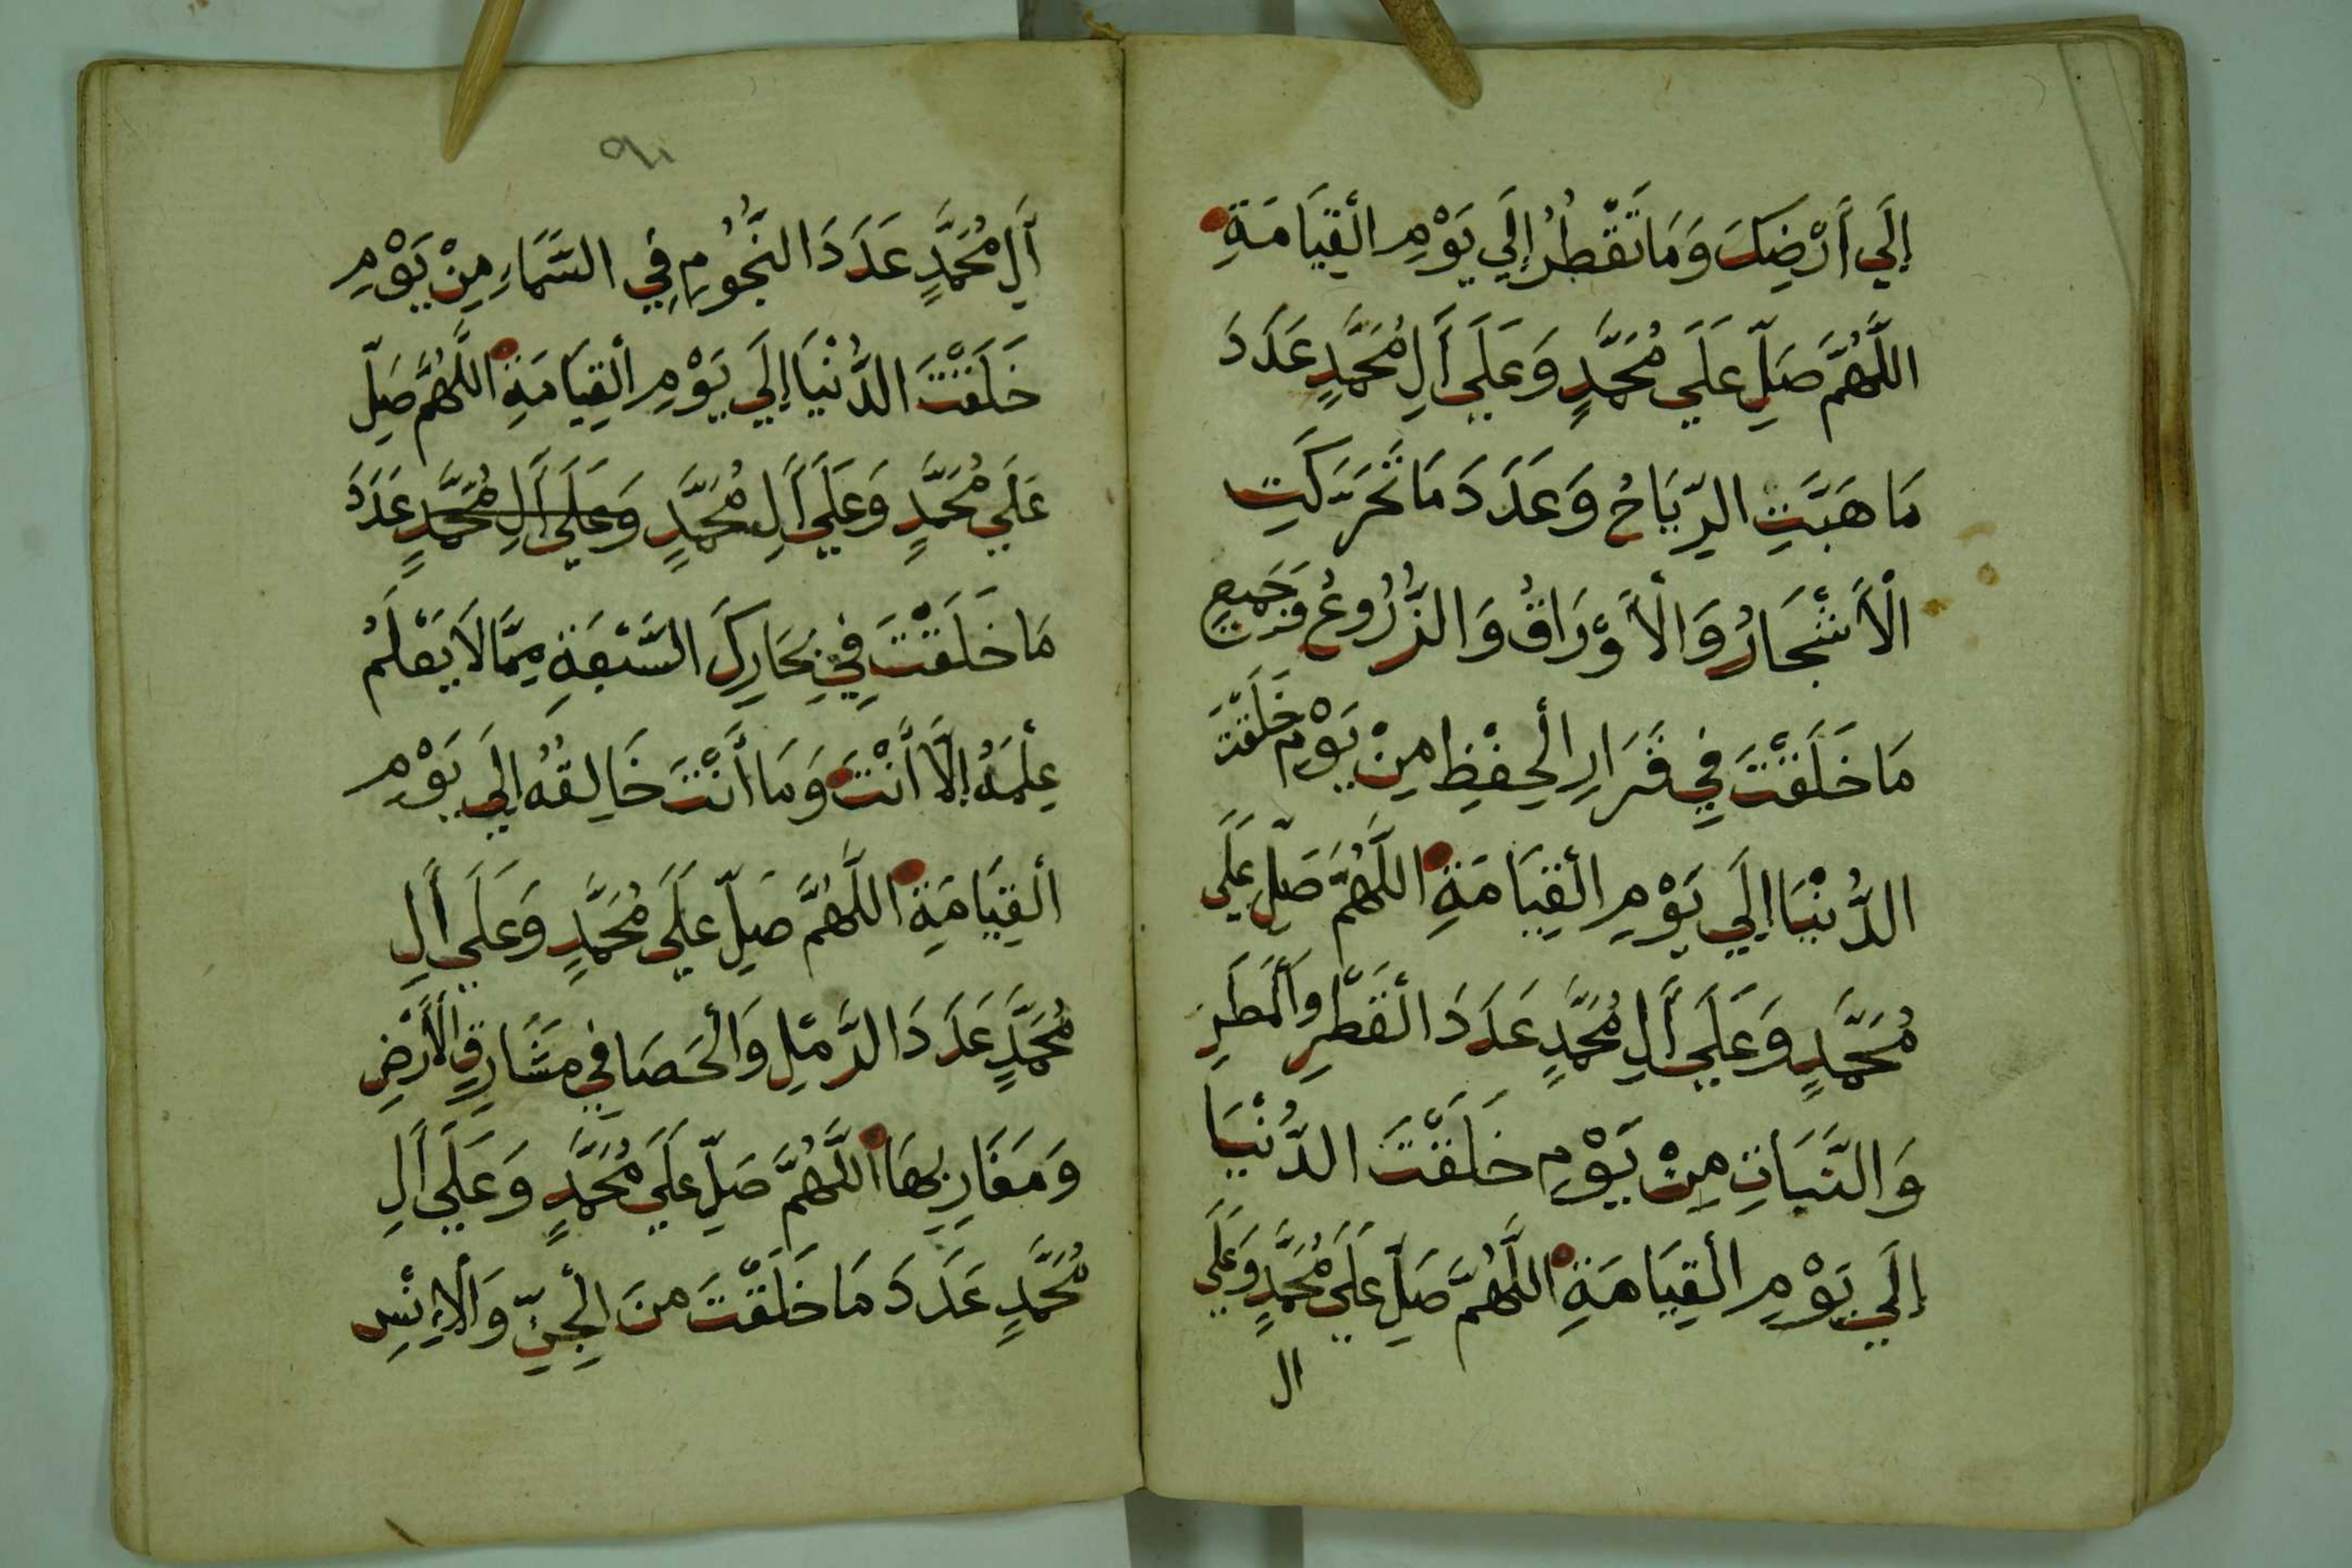 إِلَي أَرْضِكَ وَمَا تَقْطُرُ إِلَي يَوْمِ الْقِيَامَةِ
اللَّهُمَّ صَلِّ عَلَي مُحَمَّدٍ وَعَلَي أَلِ مُحَمَّدٍ عَدَدَ
مَا هَبَّتِ الرِّيَاحُ وَعَدَدَ مَا تَحَرَّكَتِ
الْأَشْجَارُ وَالْأَوْرَاقُ وَالزُّرُوعُ وَجَمِيعِ
مَا خَلَقْتَ فِي قَرَارِ الْحِفْظِ مِنْ يَوْمِ خَلَقْتَ
الدُّنْيَا إِلَي يَوْمِ الْقِيَامَةِ اللَّهُمَّ صَلِّ عَلَي
مُحَمَّدٍ وَعَلَي أَلِ مُحَمَّدٍ عَدَدَ الْقَطْرِ وَالْمَطَرِ
وَالنَّبَاتِ مِنْ يَوْمِ خَلَقْتَ الدُّنْيَا
إِلَي يَوْمِ الْقِيَامَةِ اللَّهُمَّ صَلِّ عَلَي مُحَمَّدٍ وَعَلَي
ال
أَلِ مُحَمَّدٍ عَدَدَ النُّجُومِ فِي السَّمَاءِ مِنْ يَوْمِ
خَلَقْتَ الدُّنْيَا إِلَي يَوْمِ الْقِيَامَةِ اللَّهُمَّ صَلِّ
عَلَي مُحَمَّدٍ وَعَلَي أَلِ مُحَمَّدٍ وَعَلَي أَلِ مُحَمَّدٍ عَدَدَ
مَا خَلَقْتَ فِي بِحَارِكَ السَّبْعَةِ مِمَّا لَا يَعْلَمُ
عِلْمَهُ إِلَّا أَنْتَ وَمَا أَنْتَ خَالِقُهُ إِلَي يَوْمِ
الْقِيَامَةِ اللَّهُمَّ صَلِّ عَلَي مُحَمَّدٍ وَعَلَي أَلِ
مُحَمَّدٍ عَدَدَ الرَّمْلِ وَالْحَصَا فِي مَشَارِقِ الْأَرْضِ
وَمَغَارِبِهَا اللَّهُمَّ صَلِّ عَلَي مُحَمَّدٍ وَعَلَي أَلِ
مُحَمَّدٍ عَدَدَ مَا خَلَقْتَ مِنَ الْجِنِّ وَالْإِنْسِ